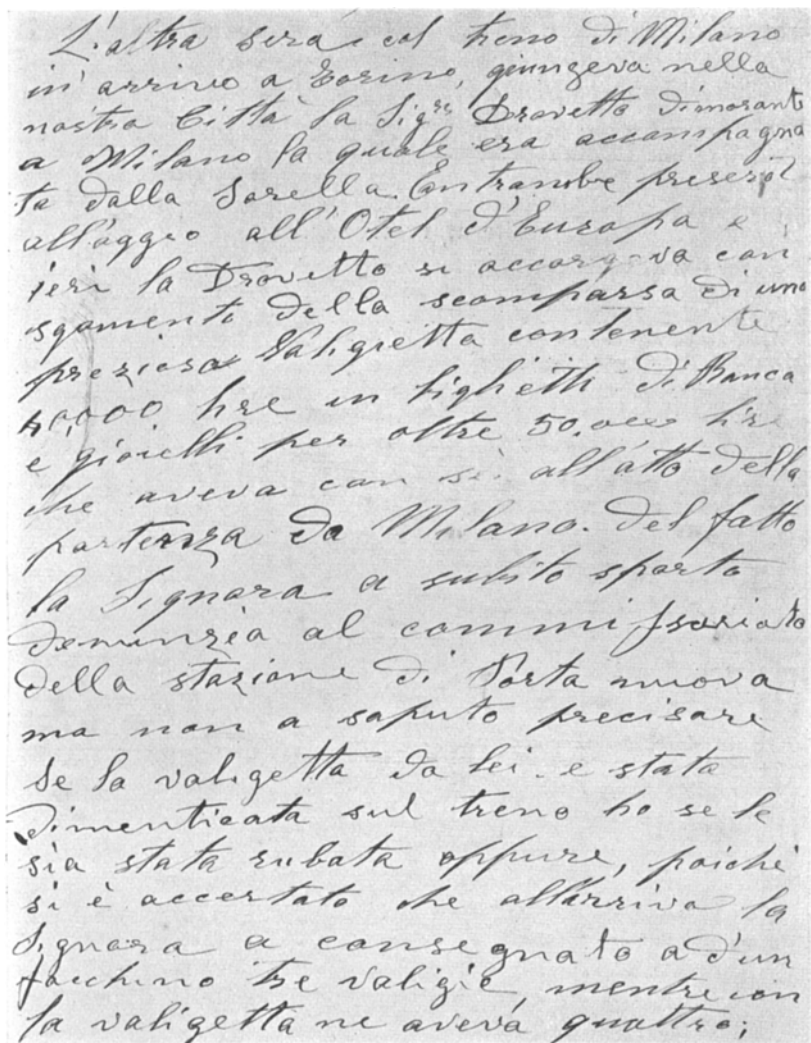 L'altra sera col treno di Milano
in arrivo a Torino, giungeva nella
nostra Città la Sigra Drovetto dimorante
a Milano la quale era accompagna
ta dalla sorella. Entrambe presero
all'oggio all'Otel d'Europa e
ieri la Drovetto si accorgeva con
sgomenti della scomparsa di una
preziosa Valigietta contenente
lire in biglietti di Banca
e gioielli per oltre 50.000 lire
che aveva con sè all'atto della
partenza da Milano. Del fatto
la Signora a subito sporto
denunzia al commissariato
della stazione di Porta nuova
ma non a saputo precisare
se la valigetta da lei e stata
dimenticata sul treno ho se le
sia stata rubata oppure, poichè
si è accertato che all'arrivo la
Signora a consegnato a d'un
facchino tre valigie, mentre con
la valigetta ne aveva quattro;